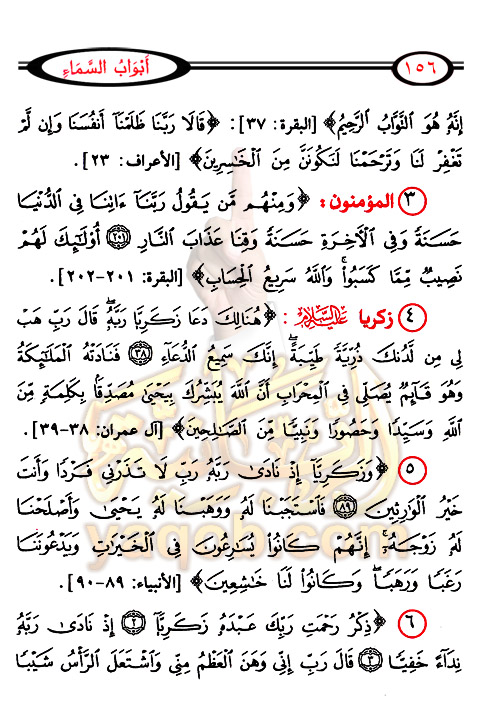 ١٥٦ أَبْوَابُ السَّمَاءِ
إِنَّهُ هُوَ التَّوَّابُ الرَّحِيمُ﴾ [البقرة: ٣٧]: ﴿قَالَا رَبَّنَا ظَلَمْنَآ أَنفُسَنَا وَإِن لَّمْ
تَغْفِرْ لَنَا وَتَرْحَمْنَا لَنَكُونَنَّ مِنَ الْخَٰسِرِينَ﴾ [الأعراف: ٢٣].
٣ المؤمنون: ﴿وَمِنْهُم مَّن يَقُولُ رَبَّنَآ ءَاتِنَا فِي الدُّنْيَا
حَسَنَةً وَفِي الْآخِرَةِ حَسَنَةً وَقِنَا عَذَابَ النَّارِ ٢٠١ أُو۟لَٰٓئِكَ لَهُمْ
نَصِيبٌ مِّمَّا كَسَبُوا۟ۚ وَاللَّهُ سَرِيعُ الْحِسَابِ﴾ [البقرة: ٢٠١-٢٠٢].
٤ زكريا عليه السلام: ﴿هُنَالِكَ دَعَا زَكَرِيَّا رَبَّهُۥۖ قَالَ رَبِّ هَبْ
لِي مِن لَّدُنكَ ذُرِّيَّةً طَيِّبَةًۖ إِنَّكَ سَمِيعُ الدُّعَآءِ ٣٨ فَنَادَتْهُ الْمَلَٰٓئِكَةُ
وَهُوَ قَآئِمٌ يُصَلِّي فِي الْمِحْرَابِ أَنَّ اللَّهَ يُبَشِّرُكَ بِيَحْيَىٰ مُصَدِّقًا بِكَلِمَةٍ مِّنَ
اللَّهِ وَسَيِّدًا وَحَصُورًا وَنَبِيًّا مِّنَ الصَّٰلِحِينَ﴾ [آل عمران: ٣٨-٣٩].
٥ ﴿وَزَكَرِيَّآ إِذْ نَادَىٰ رَبَّهُۥ رَبِّ لَا تَذَرْنِي فَرْدًا وَأَنتَ
خَيْرُ الْوَٰرِثِينَ ٨٩ فَاسْتَجَبْنَا لَهُۥ وَوَهَبْنَا لَهُۥ يَحْيَىٰ وَأَصْلَحْنَا
لَهُۥ زَوْجَهُۥٓۚ إِنَّهُمْ كَانُوا۟ يُسَٰرِعُونَ فِي الْخَيْرَٰتِ وَيَدْعُونَنَا
رَغَبًا وَرَهَبًاۖ وَكَانُوا۟ لَنَا خَٰشِعِينَ﴾ [الأنبياء: ٨٩-٩٠].
٦ ﴿ذِكْرُ رَحْمَتِ رَبِّكَ عَبْدَهُۥ زَكَرِيَّآ ٢ إِذْ نَادَىٰ رَبَّهُۥ
نِدَآءً خَفِيًّا ٣ قَالَ رَبِّ إِنِّي وَهَنَ الْعَظْمُ مِنِّي وَاشْتَعَلَ الرَّأْسُ شَيْبًا
yaqob.com